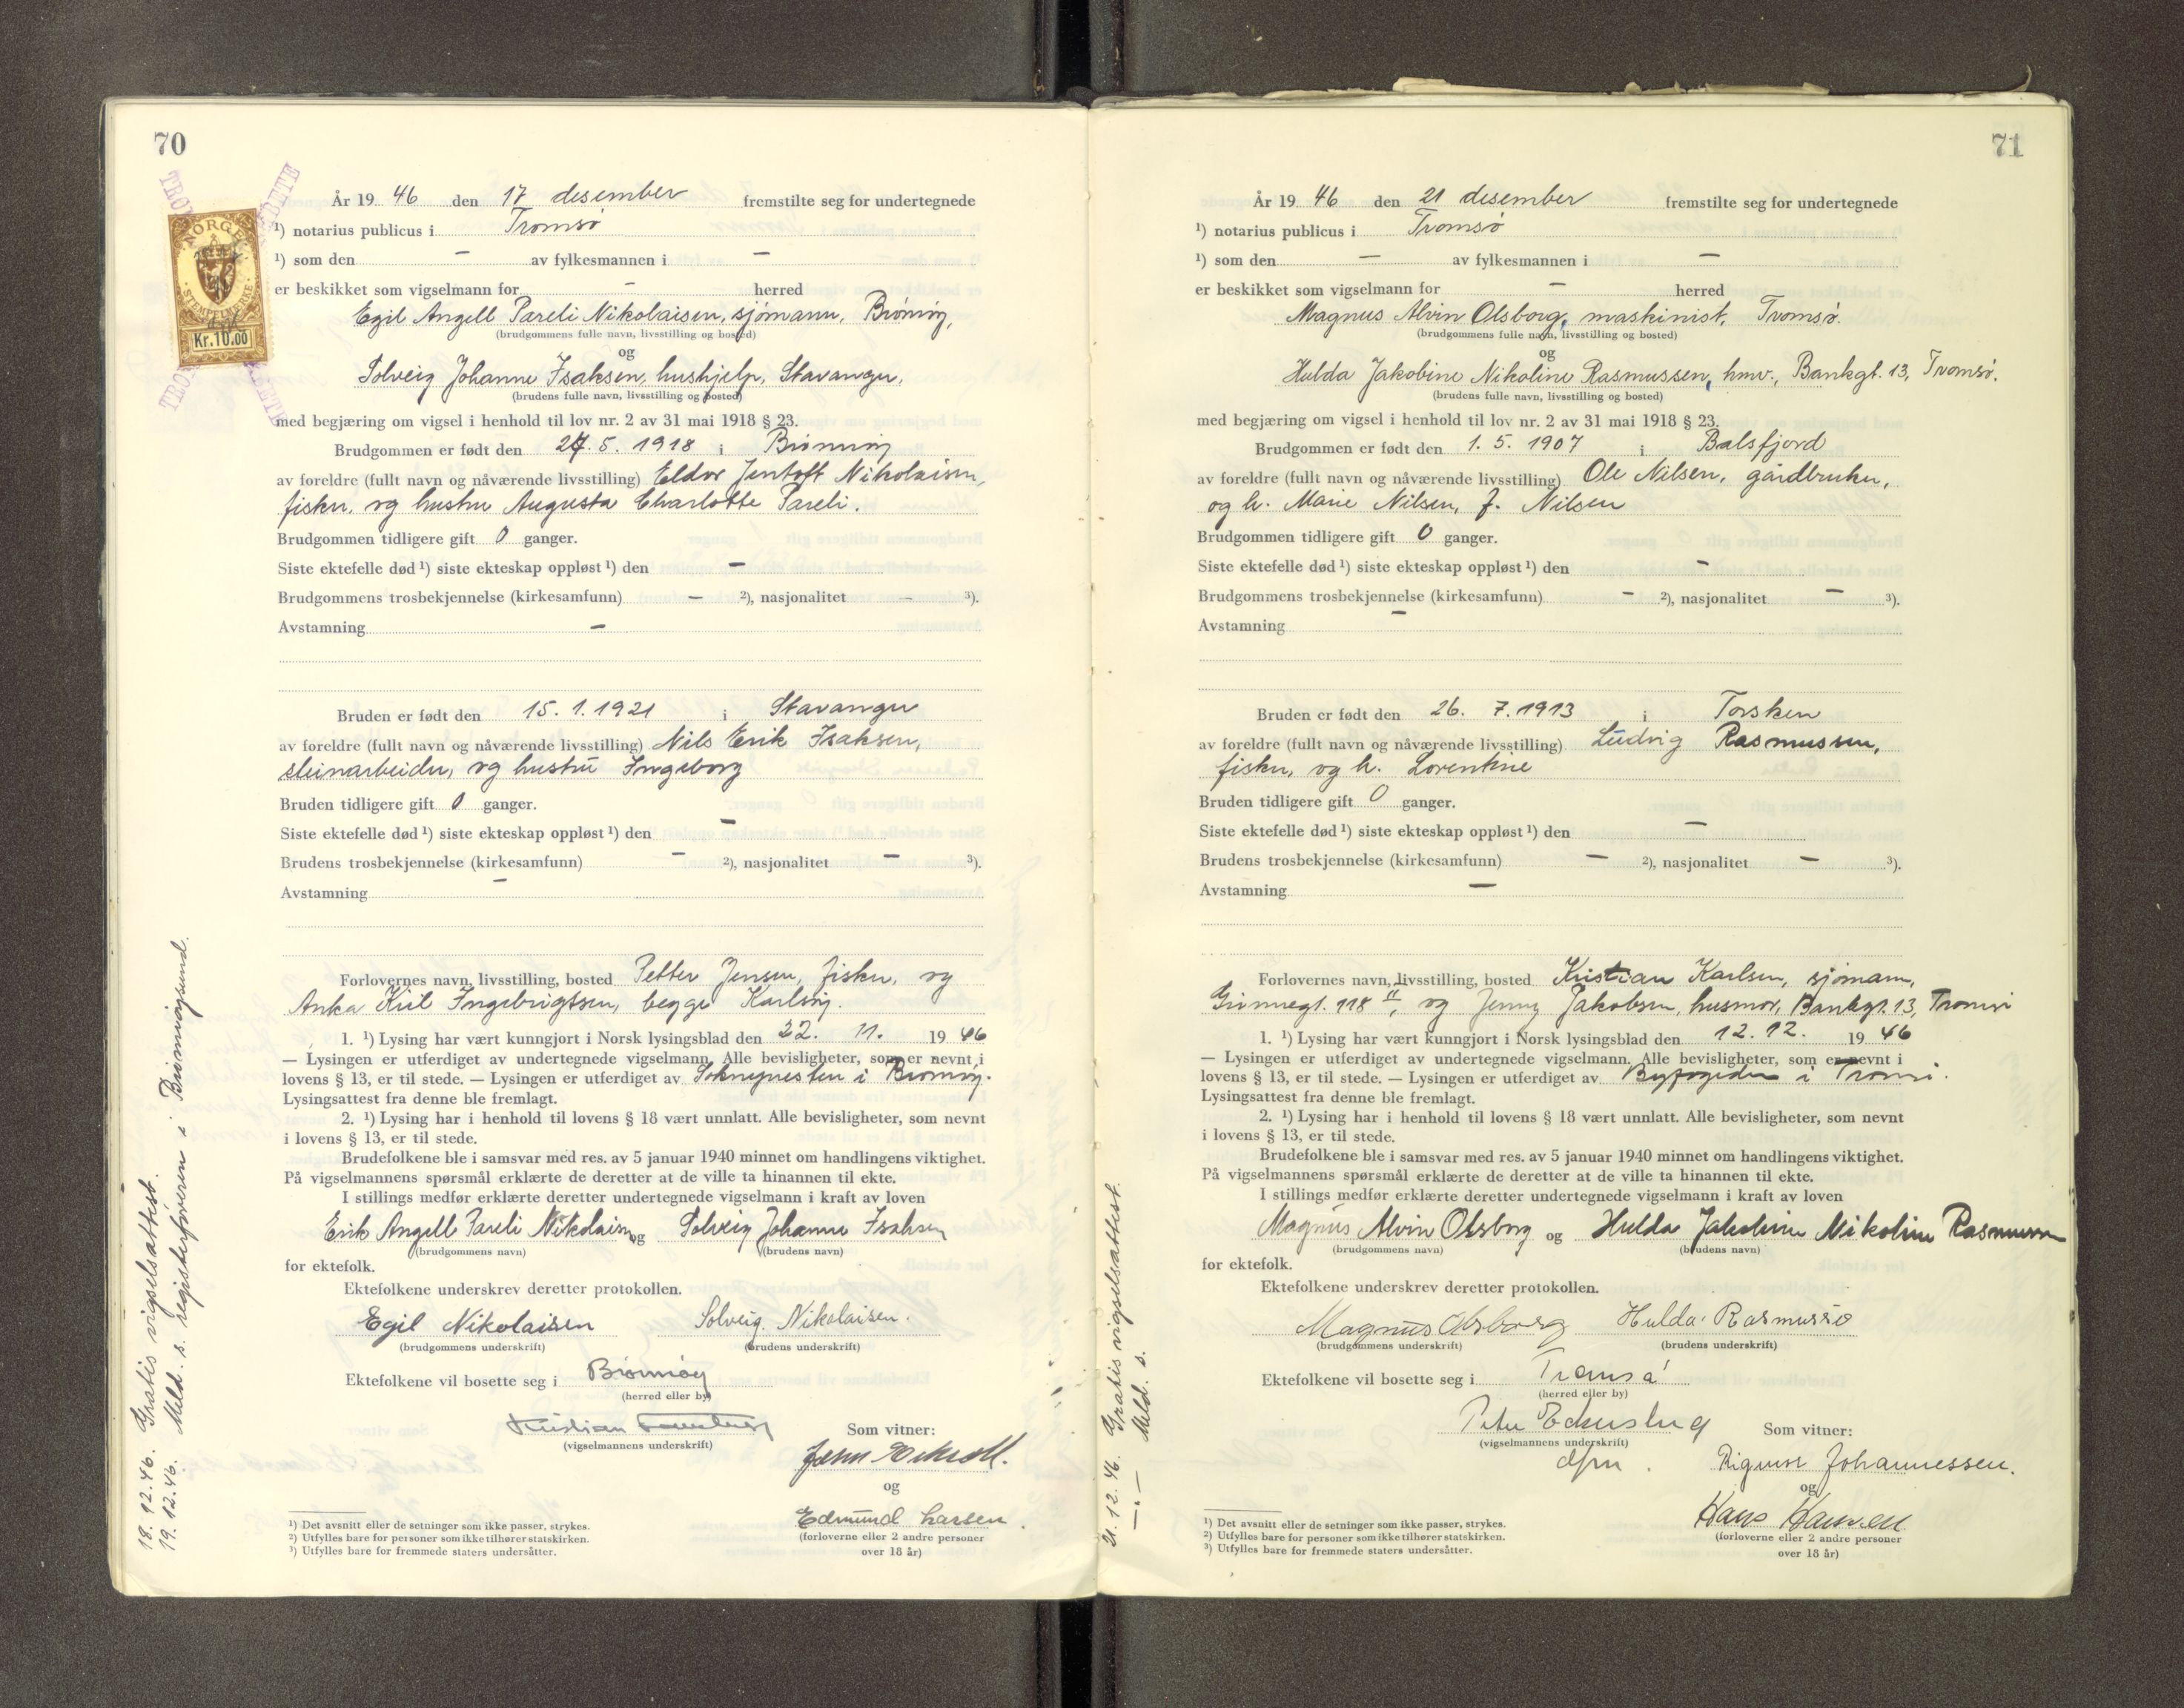 70
År 19 46 den 17 desember fremstilte seg for undertegnede
¹) notarius publicus i Tromsø
¹) som den — av fylkesmannen i —
er beskikket som vigselmann for — herred
NORGE
STEMPELMERKE
Kr.10.00
Egil Angell Pareli Nikolaisen, sjømann, Brønnøy,
(brudgommens fulle navn, livsstilling og bosted)
og
Solveig Johanne Isaksen, hushjelp, Stavanger,
(brudens fulle navn, livsstilling og bosted)
med begjæring om vigsel i henhold til lov nr. 2 av 31 mai 1918 § 23.
Brudgommen er født den 24. 5. 1918 i Brønnøy
av foreldre (fullt navn og nåværende livsstilling) Eldor Jentoft Nikolaisen,
fisker, og hustru Augusta Charlotte Pareli.
Brudgommen tidligere gift 0 ganger.
Siste ektefelle død ¹) siste ekteskap oppløst ¹) den —
Brudgommens trosbekjennelse (kirkesamfunn) — ²), nasjonalitet — ³).
Avstamning —
Bruden er født den 15. 1. 1921 i Stavanger
av foreldre (fullt navn og nåværende livsstilling) Nils Erik Isaksen,
steinarbeider, og hustru Ingeborg
Bruden tidligere gift 0 ganger.
Siste ektefelle død ¹) siste ekteskap oppløst ¹) den —
Brudens trosbekjennelse (kirkesamfunn) — ²), nasjonalitet — ³).
Avstamning —
Forlovernes navn, livsstilling, bosted Petter Jensen, fisker, og
Anka Kiil Ingebrigtsen, begge Karlsøy.
1. ¹) Lysing har vært kunngjort i Norsk lysingsblad den 22. 11. 19 46
— Lysingen er utferdiget av undertegnede vigselmann. Alle bevisligheter, som er nevnt i
lovens § 13, er til stede. — Lysingen er utferdiget av Soknepresten i Brønnøy.
Lysingsattest fra denne ble fremlagt.
2. ¹) Lysing har i henhold til lovens § 18 vært unnlatt. Alle bevisligheter, som nevnt
i lovens § 13, er til stede.
Brudefolkene ble i samsvar med res. av 5 januar 1940 minnet om handlingens viktighet.
På vigselmannens spørsmål erklærte de deretter at de ville ta hinannen til ekte.
I stillings medfør erklærte deretter undertegnede vigselmann i kraft av loven
Erik Angell Pareli Nikolaisen og Solveig Johanne Isaksen
(brudgommens navn) (brudens navn)
for ektefolk.
Ektefolkene underskrev deretter protokollen.
Egil Nikolaisen Solveig Nikolaisen.
(brudgommens underskrift) (brudens underskrift)
Ektefolkene vil bosette seg i Brønnøy
(herred eller by)
Kristian
(vigselmannens underskrift)
Som vitner:
og
Edmund Larsen.
(forloverne eller 2 andre personer
over 18 år)
¹) Det avsnitt eller de setninger som ikke passer, strykes.
²) Utfylles bare for personer som ikke tilhører statskirken.
³) Utfylles bare for fremmede staters undersåtter.
18. 12. 46. Gratis vigselsattest.
19. 12. 46. Meld. s. registerføreren i Brønnøysund.
71
År 19 46 den 21 desember fremstilte seg for undertegnede
¹) notarius publicus i Tromsø
¹) som den — av fylkesmannen i —
er beskikket som vigselmann for — herred
Magnus Alvin Olsborg, maskinist, Tromsø.
(brudgommens fulle navn, livsstilling og bosted)
og
Hulda Jakobine Nikoline Rasmussen, hmv., Bankgt. 13, Tromsø.
(brudens fulle navn, livsstilling og bosted)
med begjæring om vigsel i henhold til lov nr. 2 av 31 mai 1918 § 23.
Brudgommen er født den 1. 5. 1907 i Balsfjord
av foreldre (fullt navn og nåværende livsstilling) Ole Nilsen, gårdbruker,
og h. Marie Nilsen, f. Nilsen
Brudgommen tidligere gift 0 ganger.
Siste ektefelle død ¹) siste ekteskap oppløst ¹) den —
Brudgommens trosbekjennelse (kirkesamfunn) — ²), nasjonalitet — ³).
Avstamning —
Bruden er født den 26. 7. 1913 i Torsken
av foreldre (fullt navn og nåværende livsstilling) Ludvig Rasmussen,
fisker, og h. Lorentine
Bruden tidligere gift 0 ganger.
Siste ektefelle død ¹) siste ekteskap oppløst ¹) den —
Brudens trosbekjennelse (kirkesamfunn) — ²), nasjonalitet — ³).
Avstamning —
Forlovernes navn, livsstilling, bosted Kristian Karlsen, sjømann,
Grønnegt. 118 II, og Jenny Jakobsen, husmor, Bankgt. 13, Tromsø
1. ¹) Lysing har vært kunngjort i Norsk lysingsblad den 12. 12. 19 46
— Lysingen er utferdiget av undertegnede vigselmann. Alle bevisligheter, som er nevnt i
lovens § 13, er til stede. — Lysingen er utferdiget av Byfogden i Tromsø.
Lysingsattest fra denne ble fremlagt.
2. ¹) Lysing har i henhold til lovens § 18 vært unnlatt. Alle bevisligheter, som nevnt
i lovens § 13, er til stede.
Brudefolkene ble i samsvar med res. av 5 januar 1940 minnet om handlingens viktighet.
På vigselmannens spørsmål erklærte de deretter at de ville ta hinannen til ekte.
I stillings medfør erklærte deretter undertegnede vigselmann i kraft av loven
Magnus Alvin Olsborg og Hulda Jakobine Nikoline Rasmussen
(brudgommens navn) (brudens navn)
for ektefolk.
Ektefolkene underskrev deretter protokollen.
Magnus Olsborg Hulda Rasmussen
(brudgommens underskrift) (brudens underskrift)
Ektefolkene vil bosette seg i Tromsø
(herred eller by)
Peter
(vigselmannens underskrift)
Som vitner:
Johannessen.
og
Hans Hansen
(forloverne eller 2 andre personer
over 18 år)
¹) Det avsnitt eller de setninger som ikke passer, strykes.
²) Utfylles bare for personer som ikke tilhører statskirken.
³) Utfylles bare for fremmede staters undersåtter.
21. 12. 46. Gratis vigselsattest.
—.— Meld. s.